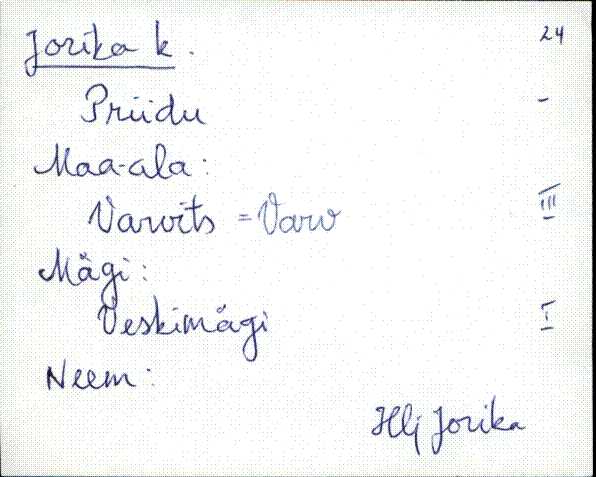 Jorika k. 24
Priidu -
Maa-ala:
Varvits = Varv III
Mägi:
Veskimägi I
Neem:
Hlj Jorika